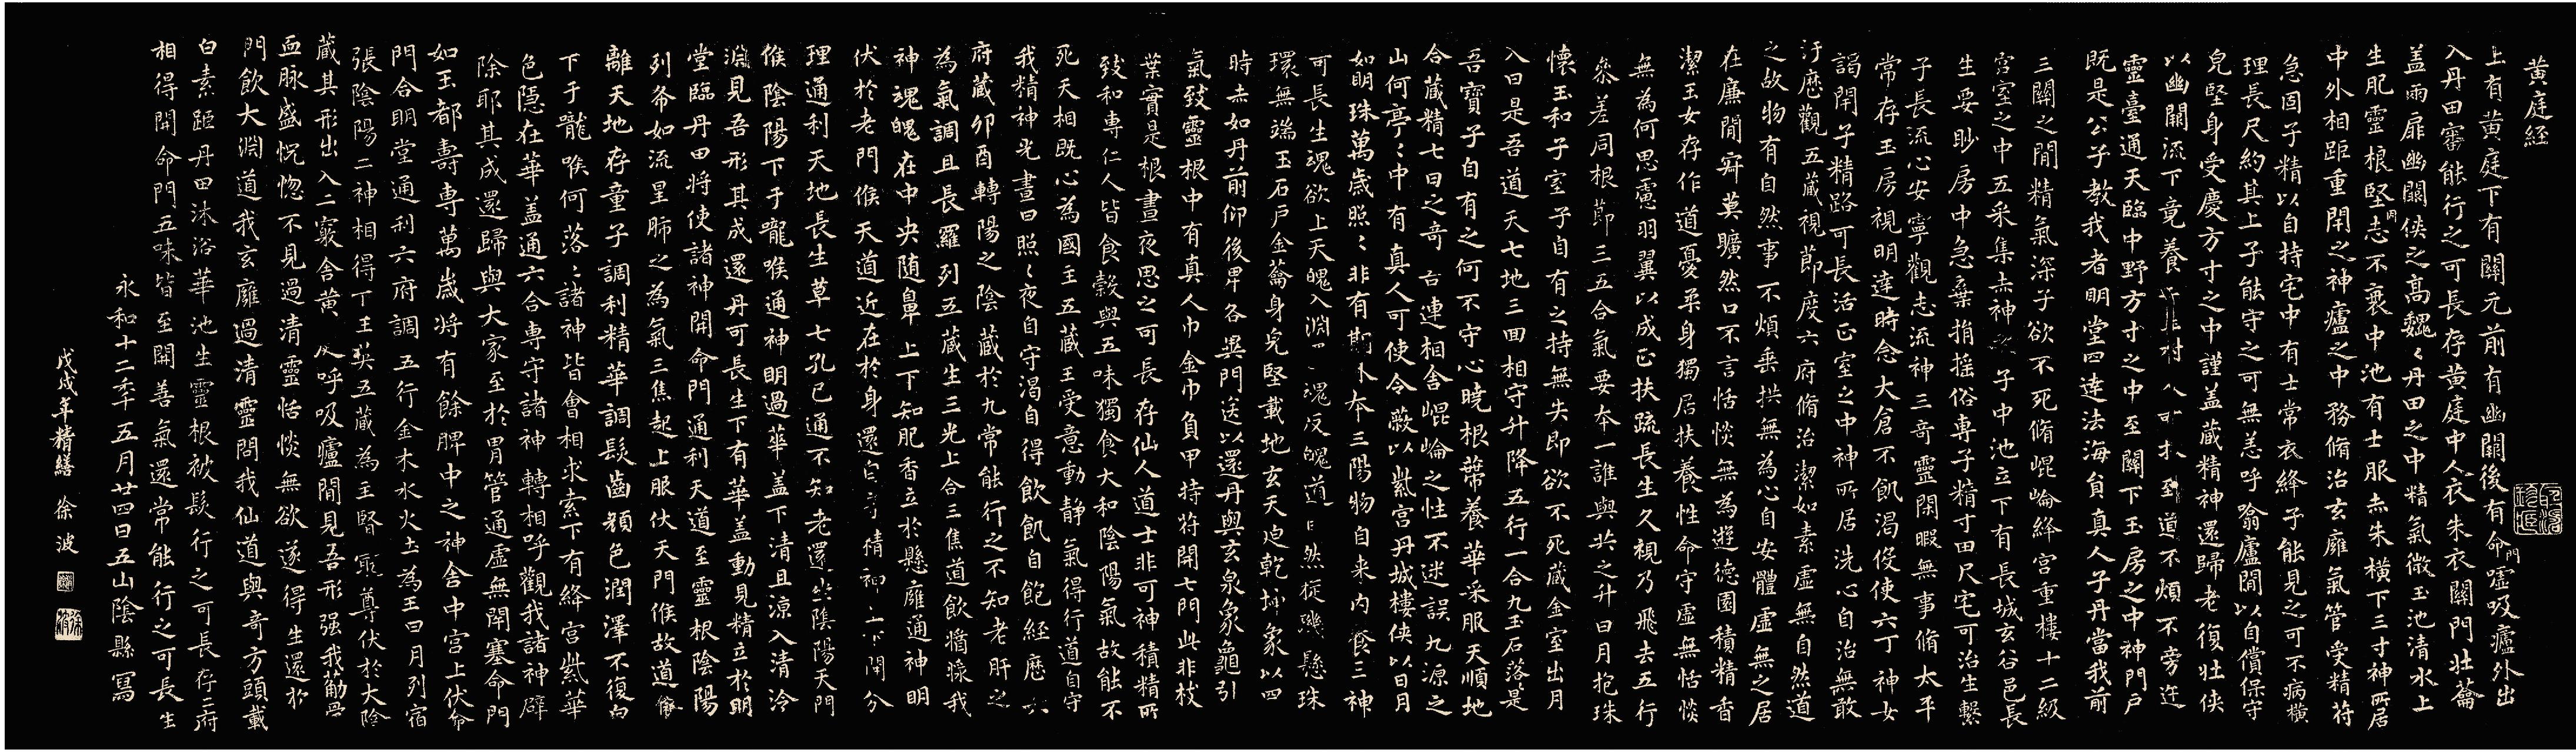 黄庭経
上有黄庭下有關元前有幽關後有命門噓吸廬外出
入丹田審能行之可長存黄庭中人衣朱衣關門壮蘥
盖兩扉幽關侠之髙魏〻丹田之中精氣微玉池清水上
生肥靈根堅志不衰中池有士服赤朱横下三寸神所居
中外相距重閇之神廬之中務脩治玄廱氣管受精符
急固子精以自持宅中有士常衣絳子能見之可不病横
理長尺約其上子能守之可無恙呼噏廬間以自償保守
皃堅身受慶方寸之中謹盖藏精神還歸老復壮侠
以幽關流下竟養 道不煩不旁迕
靈臺通天臨中野方寸之中至關下玉房之中神門戸
既是公子教我者明堂四達法海負真人子丹當我前
三關之間精氣深子欲不死脩崐崘絳宫重樓十二級
宫室之中五采集赤神 子中池立下有長城玄谷邑長
生要眇房中急棄捐揺俗専子精寸田尺宅可治生繫
子長流心安寧觀志流神三奇靈閑暇無事脩太平
常存玉房視明達時念大倉不飢渇役使六丁神女
謁閇子精路可長活正室之中神所居洗心自治無敢
汙歴觀五藏視節度六府脩治潔如素虚無自然道
之故物有自然事不煩垂拱無為心自安體虚無之居
在廉間寂莫曠然口不言恬惔無為遊徳園積精香
潔玉女存作道憂柔身獨居扶養性命守虚無恬惔
無為何思慮羽翼以成正扶疏長生久視乃飛去五行
叅差同根節三五合氣要本一誰與共之升日月抱珠
懐玉和子室子自有之持無失即欲不死藏金室出月
入日是吾道天七地三回相守升降五行一合九玉石落是
吾寶子自有之何不守心暁根蔕養華采服天順地
合藏精七日之奇吉連相舎崐崘之性不迷誤九源之
山何亭〻中有真人可使令蔽以紫宫丹城樓侠以日月
如明珠萬歳照〻非有期本三陽物自来内養三神
可長生魂欲上天魄入淵 魂反魄道自然㨁璣懸珠
環無端玉石戸金蘥身皃堅載地玄天迫乾坤象以四
時赤如丹前仰後卑各異門送以還丹與玄泉象龜引
氣致靈根中有真人巾金巾負甲持符開七門此非枝
葉實是根晝夜思之可長存仙人道士非可神積精所
致和専仁人皆食榖與五味獨食大和陰陽氣故能不
死天相既心為國主五藏王受意動静氣得行道自守
我精神光晝日照〻夜自守渇自得飲飢自飽経歴六
府藏卯酉轉陽之陰藏於九常能行之不知老肝之
為氣調且長羅列五藏生三光上合三焦道飲醬漿我
神魂魄在中央随鼻上下知肥香立於懸廱通神明
伏於老門候天道近在於身還自守精神上下開分
理通利天地長生草七孔已通不知老還坐陰陽天門
候陰陽下于嚨喉通神明過華盖下清且凉入清泠
淵見吾形其成還丹可長生下有華盖動見精立於明
堂臨丹田将使諸神開命門通利天道至靈根陰陽
列布如流星肺之為氣三焦起上服伏天門候故道
離天地存童子調利精華調髮齒顔色潤澤不復白
下于嚨喉何落〻諸神皆會相求索下有絳宫紫華
色隠在華盖通六合専守諸神轉相呼觀我諸神辟
除耶其成還歸與大家至於胃管通虚無閇塞命門
如玉都壽専萬歳将有餘脾中之神舎中宫上伏命
門合明堂通利六府調五行金木水火土為王日月列宿
張陰陽二神相得下玉英五藏為主腎最尊伏於大陰
蔵其形出入二竅舎黄 呼吸廬間見吾形强我筋骨
血脉盛怳惚不見過清靈恬惔無欲遂得生還於
門飲大淵道我玄廱過清靈問我仙道與奇方頭載
白素距丹田沐浴華池生靈根被髮行之可長存二府
相得開命門五味皆至開善氣還常能行之可長生
永和十二年五月廿四日五山陰縣寫
戊戌年精繕 徐波